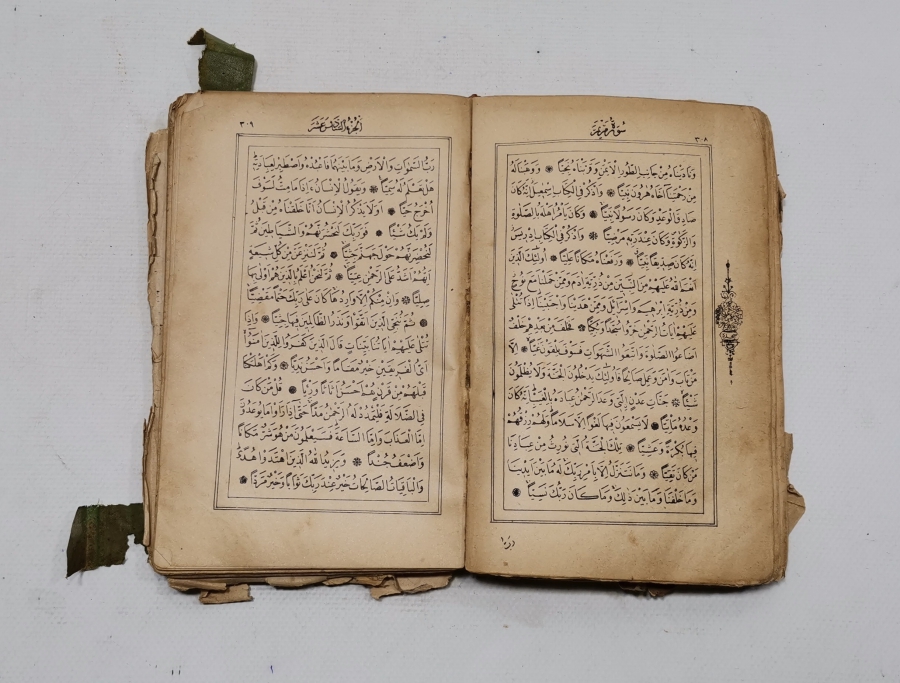 ٣٠٨
سُورَةُ مَرْيَمَ
وَنَادَيْنَاهُ مِنْ جَانِبِ الطُّورِ الْاَيْمَنِ وَقَرَّبْنَاهُ نَجِيًّا ۞ وَوَهَبْنَا لَهُ
مِنْ رَحْمَتِنَا اَخَاهُ هٰرُونَ نَبِيًّا ۞ وَاذْكُرْ فِي الْكِتَابِ اِسْمٰعِيلَ اِنَّهُ كَانَ
صَادِقَ الْوَعْدِ وَكَانَ رَسُولًا نَبِيًّا ۞ وَكَانَ يَأْمُرُ اَهْلَهُ بِالصَّلٰوةِ
وَالزَّكٰوةِ وَكَانَ عِنْدَ رَبِّهِ مَرْضِيًّا ۞ وَاذْكُرْ فِي الْكِتَابِ اِدْرِيسَ
اِنَّهُ كَانَ صِدِّيقًا نَبِيًّا ۞ وَرَفَعْنَاهُ مَكَانًا عَلِيًّا ۞ اُولٰئِكَ الَّذِينَ
اَنْعَمَ اللّٰهُ عَلَيْهِمْ مِنَ النَّبِيِّنَ مِنْ ذُرِّيَّةِ اٰدَمَ وَمِمَّنْ حَمَلْنَا مَعَ نُوحٍ
وَمِنْ ذُرِّيَّةِ اِبْرٰهِيمَ وَاِسْرَائِيلَ وَمِمَّنْ هَدَيْنَا وَاجْتَبَيْنَا اِذَا تُتْلٰى
عَلَيْهِمْ اٰيَاتُ الرَّحْمٰنِ خَرُّوا سُجَّدًا وَبُكِيًّا ۞ فَخَلَفَ مِنْ بَعْدِهِمْ خَلْفٌ
اَضَاعُوا الصَّلٰوةَ وَاتَّبَعُوا الشَّهَوَاتِ فَسَوْفَ يَلْقَوْنَ غَيًّا ۞ اِلَّا
مَنْ تَابَ وَاٰمَنَ وَعَمِلَ صَالِحًا فَاُولٰئِكَ يَدْخُلُونَ الْجَنَّةَ وَلَا يُظْلَمُونَ
شَيْئًا ۞ جَنَّاتِ عَدْنٍ الَّتِي وَعَدَ الرَّحْمٰنُ عِبَادَهُ بِالْغَيْبِ اِنَّهُ كَانَ
وَعْدُهُ مَأْتِيًّا ۞ لَا يَسْمَعُونَ فِيهَا لَغْوًا اِلَّا سَلَامًا وَلَهُمْ رِزْقُهُمْ
فِيهَا بُكْرَةً وَعَشِيًّا ۞ تِلْكَ الْجَنَّةُ الَّتِي نُورِثُ مِنْ عِبَادِنَا
مَنْ كَانَ تَقِيًّا ۞ وَمَا نَتَنَزَّلُ اِلَّا بِاَمْرِ رَبِّكَ لَهُ مَا بَيْنَ اَيْدِينَا
وَمَا خَلْفَنَا وَمَا بَيْنَ ذٰلِكَ وَمَا كَانَ رَبُّكَ نَسِيًّا ۞
الْجُزْءُ السَّادِسَ عَشَرَ
٣٠٩
رَبُّ السَّمٰوَاتِ وَالْاَرْضِ وَمَا بَيْنَهُمَا فَاعْبُدْهُ وَاصْطَبِرْ لِعِبَادَتِهِ
هَلْ تَعْلَمُ لَهُ سَمِيًّا ۞ وَيَقُولُ الْاِنْسَانُ ءَاِذَا مَا مِتُّ لَسَوْفَ
اُخْرَجُ حَيًّا ۞ اَوَلَا يَذْكُرُ الْاِنْسَانُ اَنَّا خَلَقْنَاهُ مِنْ قَبْلُ
وَلَمْ يَكُ شَيْئًا ۞ فَوَرَبِّكَ لَنَحْشُرَنَّهُمْ وَالشَّيَاطِينَ ثُمَّ
لَنُحْضِرَنَّهُمْ حَوْلَ جَهَنَّمَ جِثِيًّا ۞ ثُمَّ لَنَنْزِعَنَّ مِنْ كُلِّ شِيعَةٍ
اَيُّهُمْ اَشَدُّ عَلَى الرَّحْمٰنِ عِتِيًّا ۞ ثُمَّ لَنَحْنُ اَعْلَمُ بِالَّذِينَ هُمْ اَوْلٰى بِهَا
صِلِيًّا ۞ وَاِنْ مِنْكُمْ اِلَّا وَارِدُهَا كَانَ عَلٰى رَبِّكَ حَتْمًا مَقْضِيًّا
۞ ثُمَّ نُنَجِّي الَّذِينَ اتَّقَوْا وَنَذَرُ الظَّالِمِينَ فِيهَا جِثِيًّا ۞ وَاِذَا
تُتْلٰى عَلَيْهِمْ اٰيَاتُنَا بَيِّنَاتٍ قَالَ الَّذِينَ كَفَرُوا لِلَّذِينَ اٰمَنُوا
اَيُّ الْفَرِيقَيْنِ خَيْرٌ مَقَامًا وَاَحْسَنُ نَدِيًّا ۞ وَكَمْ اَهْلَكْنَا
قَبْلَهُمْ مِنْ قَرْنٍ هُمْ اَحْسَنُ اَثَاثًا وَرِءْيًا ۞ قُلْ مَنْ كَانَ
فِي الضَّلَالَةِ فَلْيَمْدُدْ لَهُ الرَّحْمٰنُ مَدًّا حَتّٰى اِذَا رَاَوْا مَا يُوعَدُونَ
اِمَّا الْعَذَابَ وَاِمَّا السَّاعَةَ فَسَيَعْلَمُونَ مَنْ هُوَ شَرٌّ مَكَانًا
وَاَضْعَفُ جُنْدًا ۞ وَيَزِيدُ اللّٰهُ الَّذِينَ اهْتَدَوْا هُدًى
وَالْبَاقِيَاتُ الصَّالِحَاتُ خَيْرٌ عِنْدَ رَبِّكَ ثَوَابًا وَخَيْرٌ مَرَدًّا ۞